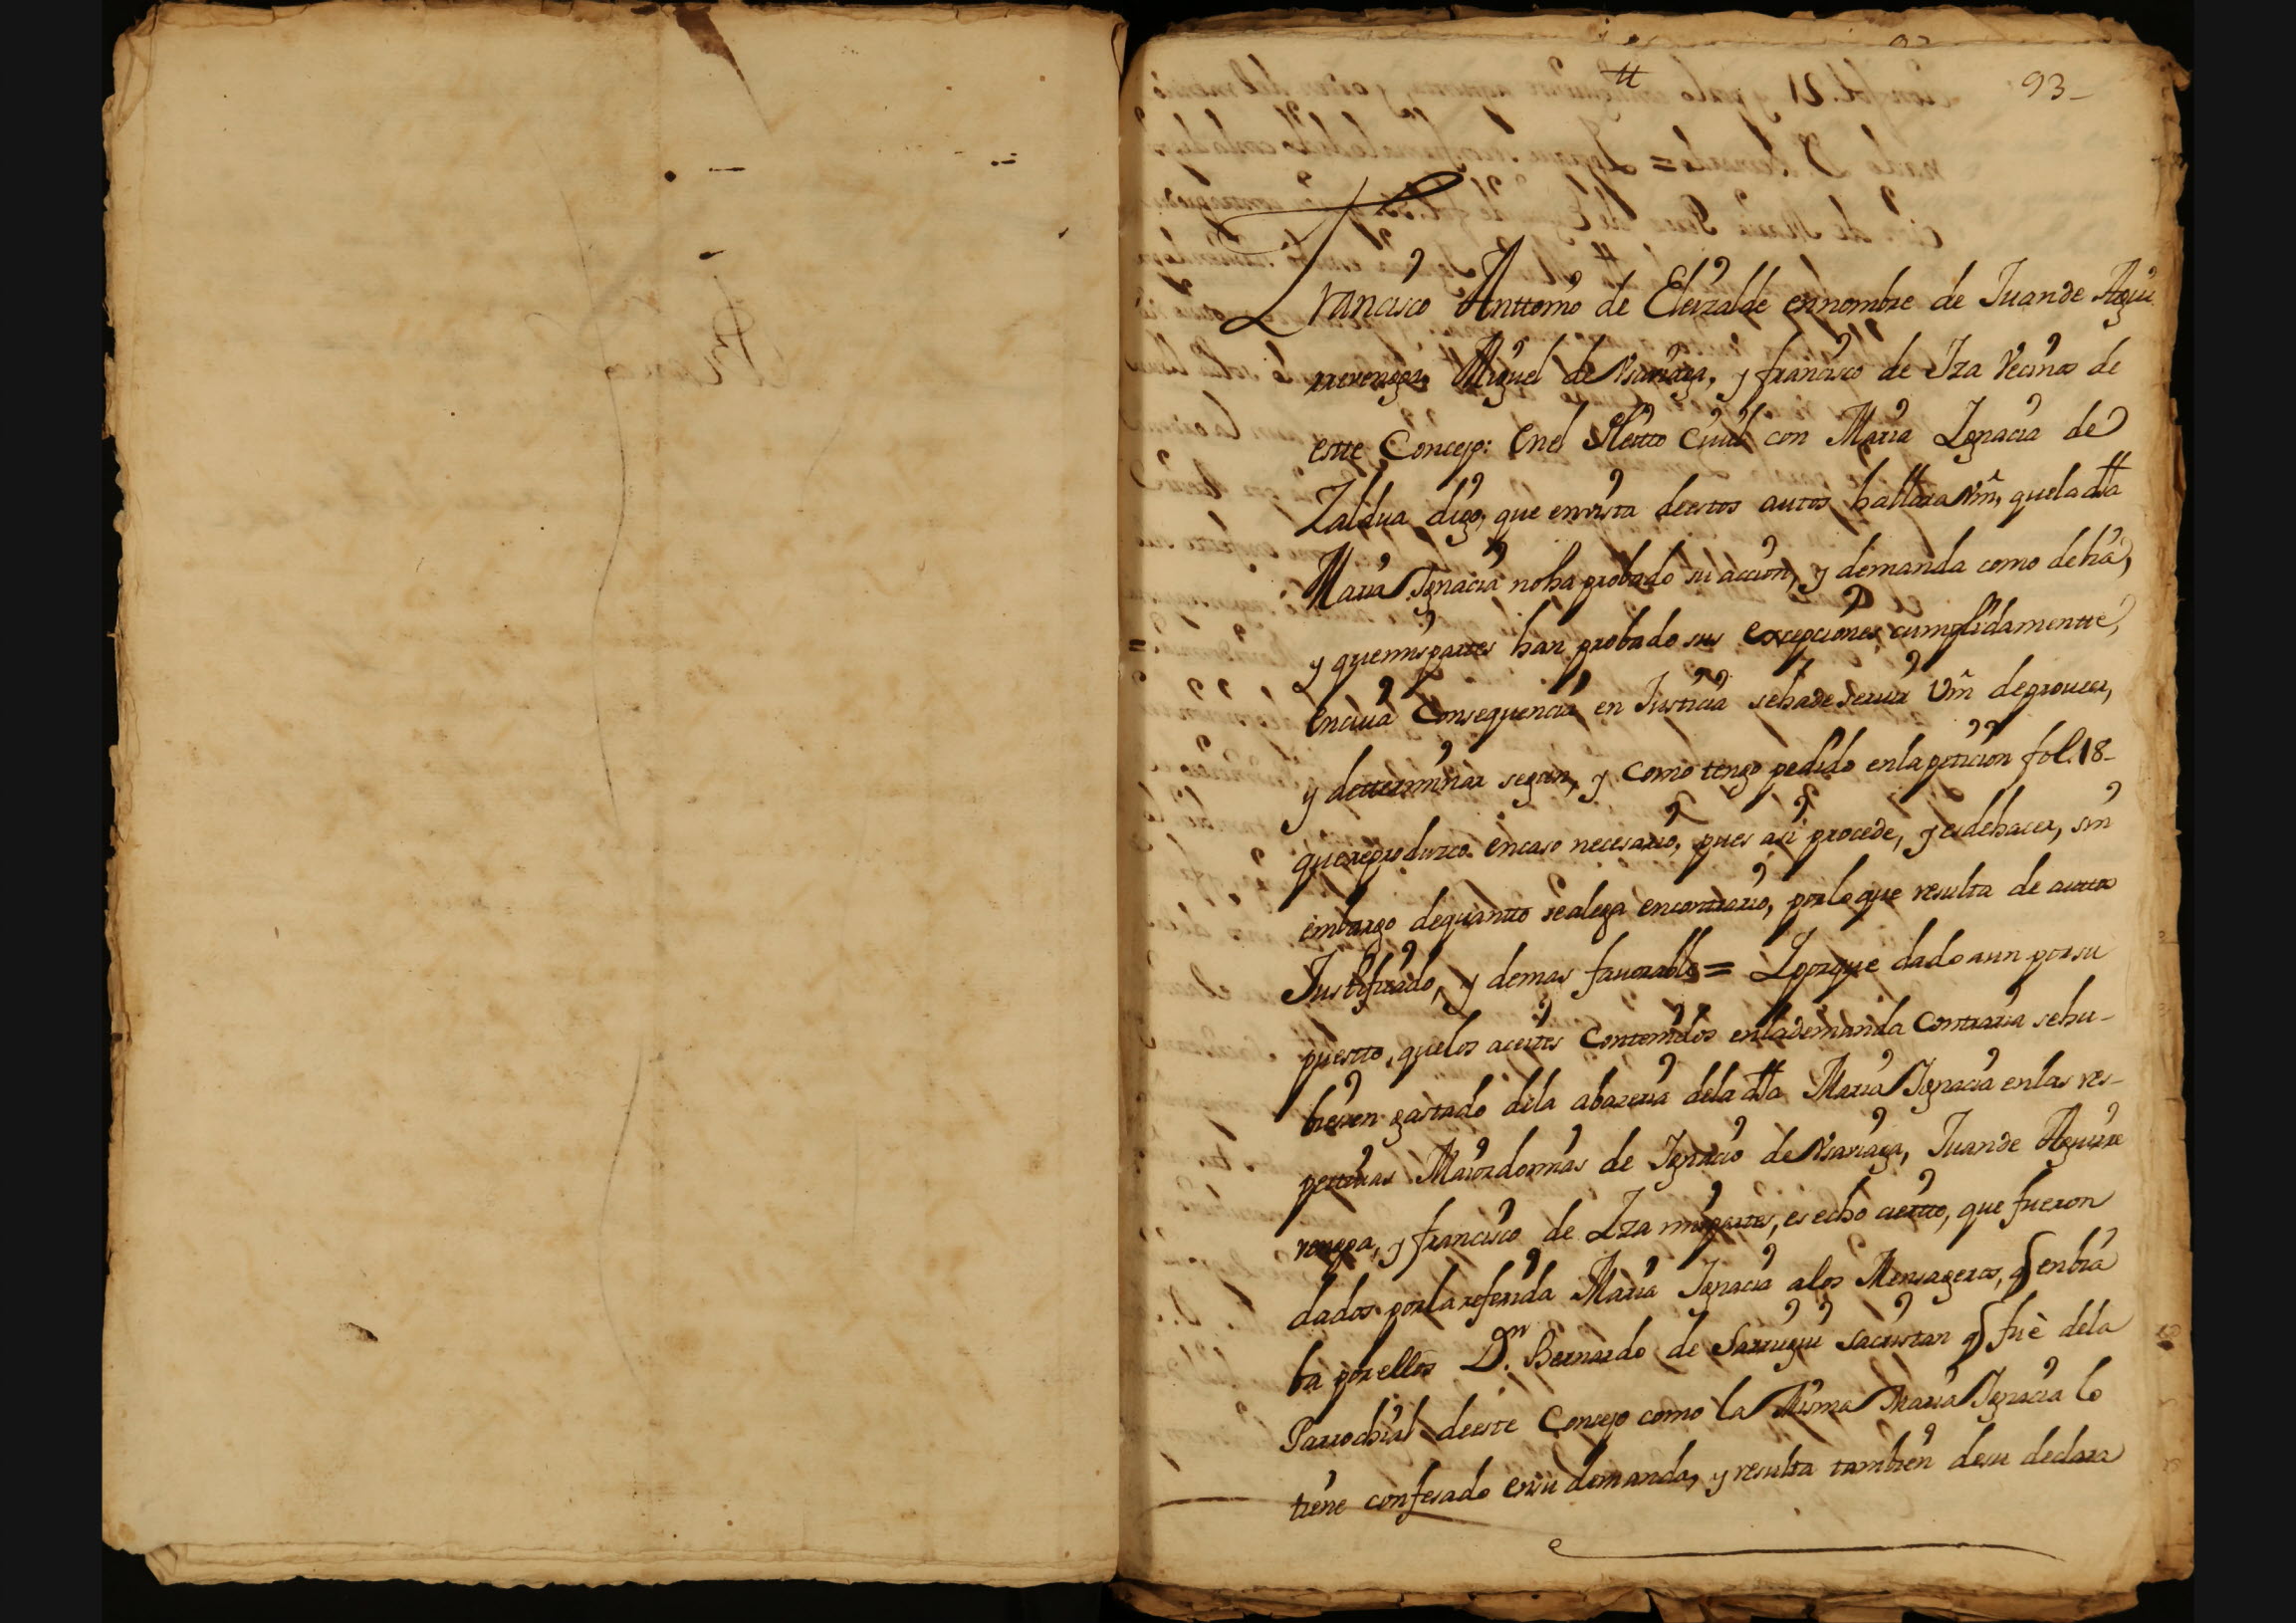 93-
Francisco Anttonio de Eleizalde ennombre de Juande Aguir
rerenogea Miguel de Usarraga, y francisco de Iza Vecinos de
estte Concejo: Enel Pleitto Ciuil con Maria Ignacia de
Zaldua digo, que envista deestos autos hallara Vm, quela dtta
Maria Ignacia noha probado su accion, y demanda como debia,
y quemispartes han probado sus excepciones cumplidamentte,
encuia Consequencia en Justicia sehadeseruir Vm deproueer,
y dettерminar segun, y como tengo pedido enlapeticion fol. 18-
quereproduzco encaso necesario, pues asi procede, y esdehacer, sin
embargo dequantto sealega encontrario, porloque resulta de auttos
Justificado, y demas fauorable = Yporque dado aun porsu
puestto, quelos aceites Contenidos enlademanda Contraria sehu-
biesen gastado dela abazeria dela dtta Maria Ignacia enlas res-
pettiuas Maiordomias de Ignacio de Usarraga, Juande Aguirre
renogea, y francisco de Iza mispartes, es echo ciertto, que fueron
dados porla referida Maria Ignacia alos Mensageros, q enbia
ba por ellos Dn. Bernardo de Sarrugui sacristan q fuè dela
Parrochial deeste Concejo como la Misma Maria Ignacia lo
tiene confesado ensu demanda, y resulta tambien desu declara